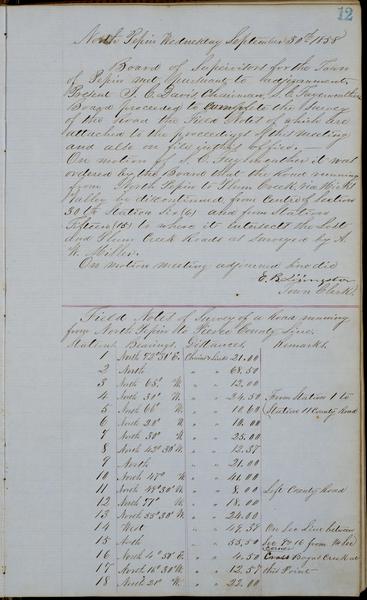 12
North Pepin Wednesday September 30th 1858
Board of Supervisors for the Town
of Pepin met pursuant to adjournment
Present S. C. Davis Chairman, S. C. Fayerweather
Board proceeded to compleete the Survey
of the Road the Field Notes of which are
attached to the proceedings of this meeting
and also on file in this office.
On motion of S. C. Fayerweather it was
ordered by the Board that the Road running
from North Pepin to Plum Creek via
Valley be discontinued from Centre of Section
30th Station Six (6) and from Station
Fifteen (15) to where it intersects the Lost
and Plum Creek Roads as surveyed by A.
W. Miller.
On motion meeting adjourned sine die
E. B. Livingston
Town Clerk.
Field Notes of Survey of a Road running
from North Pepin to Pierce County Line.
Stations Bearings. Distances. Remarks.
1 North 72° 31' E. Chains & Links 21.00
2 North " " 68.50
3 North 65° W. " " 13.00
4 North 30° W. " " 24.50 From Station 1 to
5 North 66° W. " " 10.60 Station 11 County Road
6 North 20° W. " " 10.00
7 North 50° W. " " 25.00
8 North 42° 30' W. " " 13.57
9 North " " 21.00
10 North 47° W. " " 41.00
11 North 48° 30' W. " " 8.00 Left County Road
12 North 71° W. " " 18.00
13 North 55° 30' W. " " 24.00
14 West " " 48.37 On Sec Line between
15 North " " 53.50 Sec 9 & 16 from where
Corner
16 North 4° 58' E. " " 4.50 Cross Bogus Creek at
17 North 16° 30' W. " " 12.57 this Point
18 North 21° W. " " 22.00